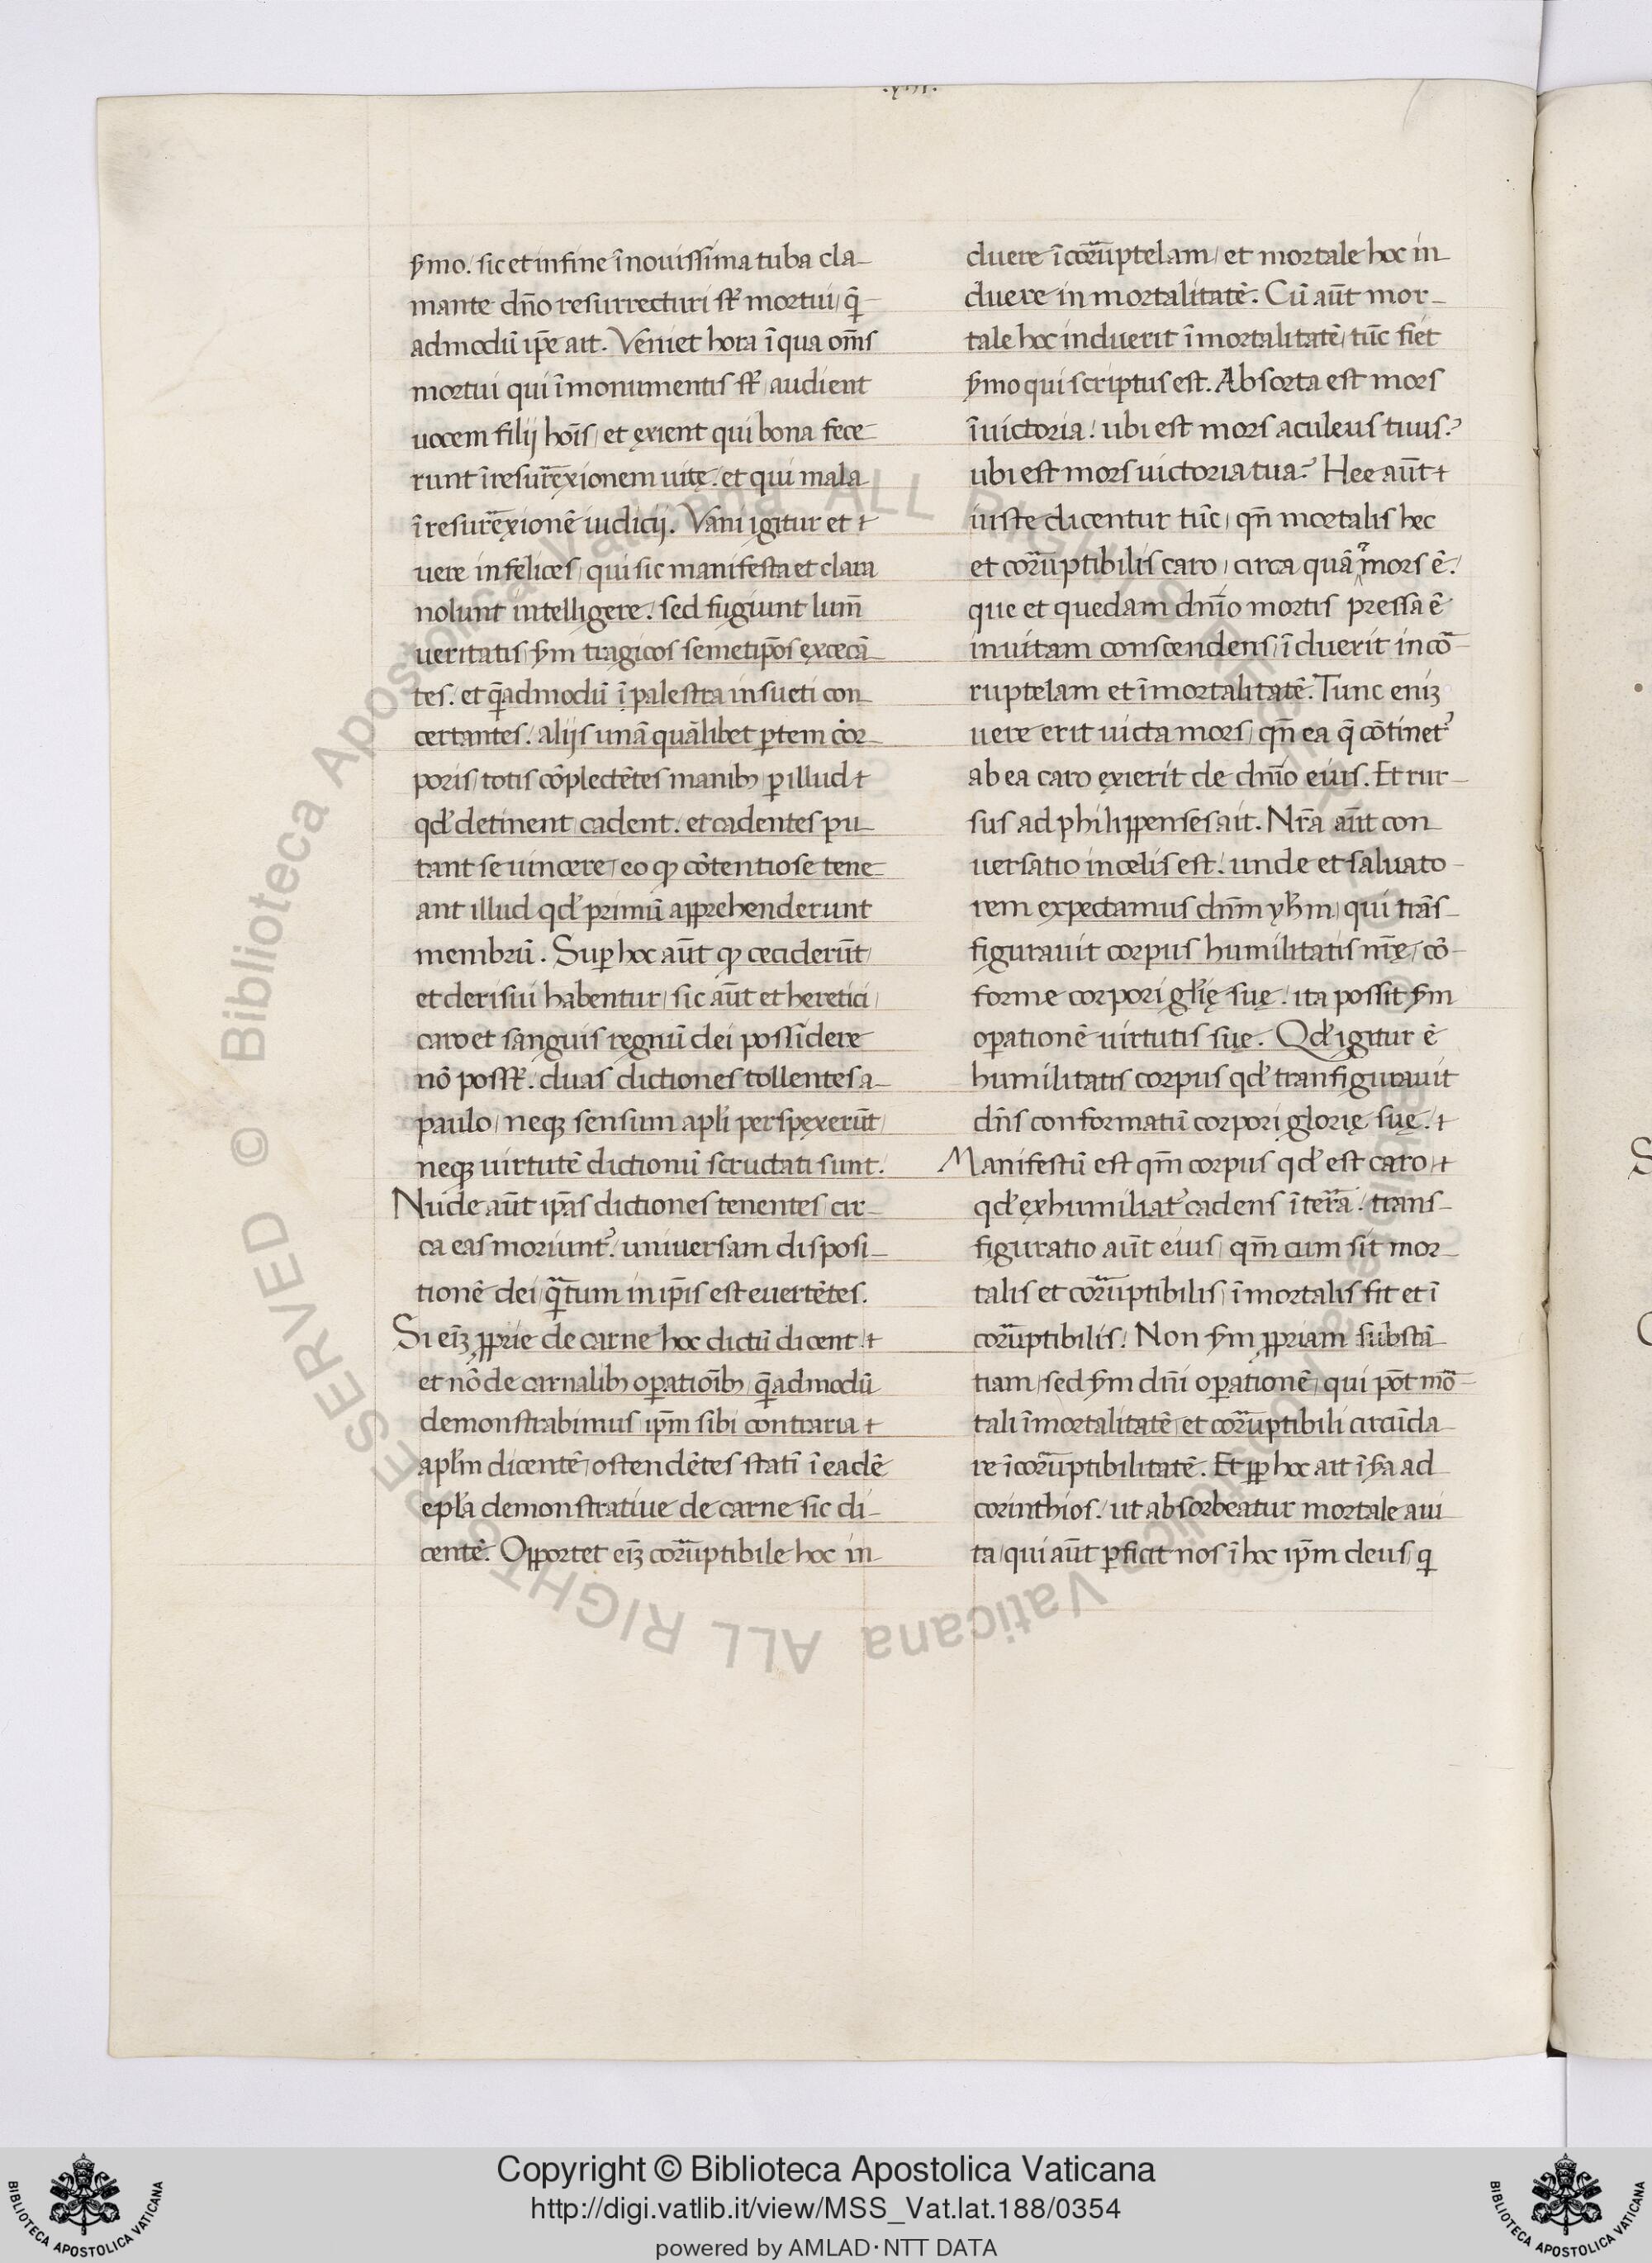 .xiii.
s̄mo. sic et in fine ī nouissima tuba cla-
mante dn̄o resurrecturi st̄ mortui, quē-
admodū ip̄e ait. Veniet hora ī qua om̄s
mortui qui ī monumentis st̄, audient
uocem filij hoīs, et exient qui bona fece-
runt ī resurr̄exionem uitę. et qui mala
ī resurr̄exionē iudicij. Vani igitur et
uere infelices, qui sic manifesta et clara
nolunt intelligere. sed fugiunt lum̄
ueritatis, s̄m tragicos semetip̄os excecā-
tes. et quēadmodū ī palestra insueti con-
certantes. alijs unā quālibet ꝑtem cor-
poris, totis cōplectētes manibꝫ ꝑ illud
qd̓ detinent, cadent. et cadentes pu-
tant se uincere, eo ꝙ cōtentiose tene-
ant illud qd̓ primū apprehenderunt
membrū. Suꝑ hoc aūt ꝙ ceciderūt,
et derisui habentur, sic aūt et heretici,
caro et sanguis regnū dei possidere
nō posst̄. duas dictiones tollentes a-
paulo, neqꝫ sensum apl̄i perspexerūt,
neqꝫ uirtutē dictionū scructati sunt.
Nude aūt ip̄as dictiones tenentes, cir-
ca eas moriunt᷑. uniuersam disposi-
tionē dei, quātum in ip̄is est euertētes.
Si eīꝫ ꝓprie de carne hoc dictū dicent.
et nō de carnalibꝫ oꝑatioībꝫ, quēadmodū
demonstrabimus, ip̄m sibi contraria
apl̄m dicentē, ostendētes statī ī eadē
epl̄a demonstratiue de carne sic di-
centē. Opportet eīꝫ corr̄uptibile hoc in-
duere īcorr̄uptelam, et mortale hoc in
duere inmortalitatē. Cū aūt mor-
tale hoc induerit īmortalitatē, tūc fiet
s̄mo qui scriptus est. Absorta est mors
ī uictoria. ubi est mors aculeus tuus?
ubi est mors uictoria tua? Hee aūt
iuste dicentur tūc, qn̄ mortalis hec
et corr̄uptibilis caro, circa quā mors ē.
que et quedam dn̄io mortis pressa ē
in uitam conscendens, īduerit incor̄-
ruptelam et īmortalitatē. Tunc enīꝫ
uere erit uicta mors, qn̄ ea q̄ cōtinet᷑
ab ea caro exierit de dn̄io eius. Et rur-
sus ad philippenses ait. Nr̄a aūt con
uersatio in celis est. unde et saluato-
rem expectamus dn̄m yh̄m, qui trās-
figurauit corpus humilitatis nr̄ę, cō-
forme corpori gl̄ię suę. ita possit s̄m
oꝑationē uirtutis suę. Qd̓ igitur ē
humilitatis corpus qd̓ tranfigurauit
dn̄s conformatū corpori glorię suę.
Manifestū est qm̄ corpus qd̓ est caro,
qd̓ exhumiliat᷑ cadens ī terr̄a. trans-
figuratio aūt eius, qm̄ cum sit mor-
talis et corr̄uptibilis, īmortalis fit et ī
corr̄uptibilis. Non s̄m ꝓpriam substā
tiam, sed s̄m dn̄i oꝑationē, qui pōt mor̄-
tali īmortalitatē, et corr̄uptibili circūda-
re īcorr̄uptibilitatē. Et ꝓp̄ hoc ait ī s̄a ad
corinthios. ut absorbeatur mortale a ui
ta, qui aūt ꝑficit nos ī hoc ip̄m deus, qui
© Biblioteca Apostolica Vaticana ALL RIGHTS RESERVED
© Biblioteca Apostolica Vaticana ALL RIGHTS RESERVED
Copyright © Biblioteca Apostolica Vaticana
http://digi.vatlib.it/view/MSS_Vat.lat.188/0354
powered by AMLAD·NTT DATA
BIBLIOTECA APOSTOLICA VATICANA
BIBLIOTECA APOSTOLICA VATICANA